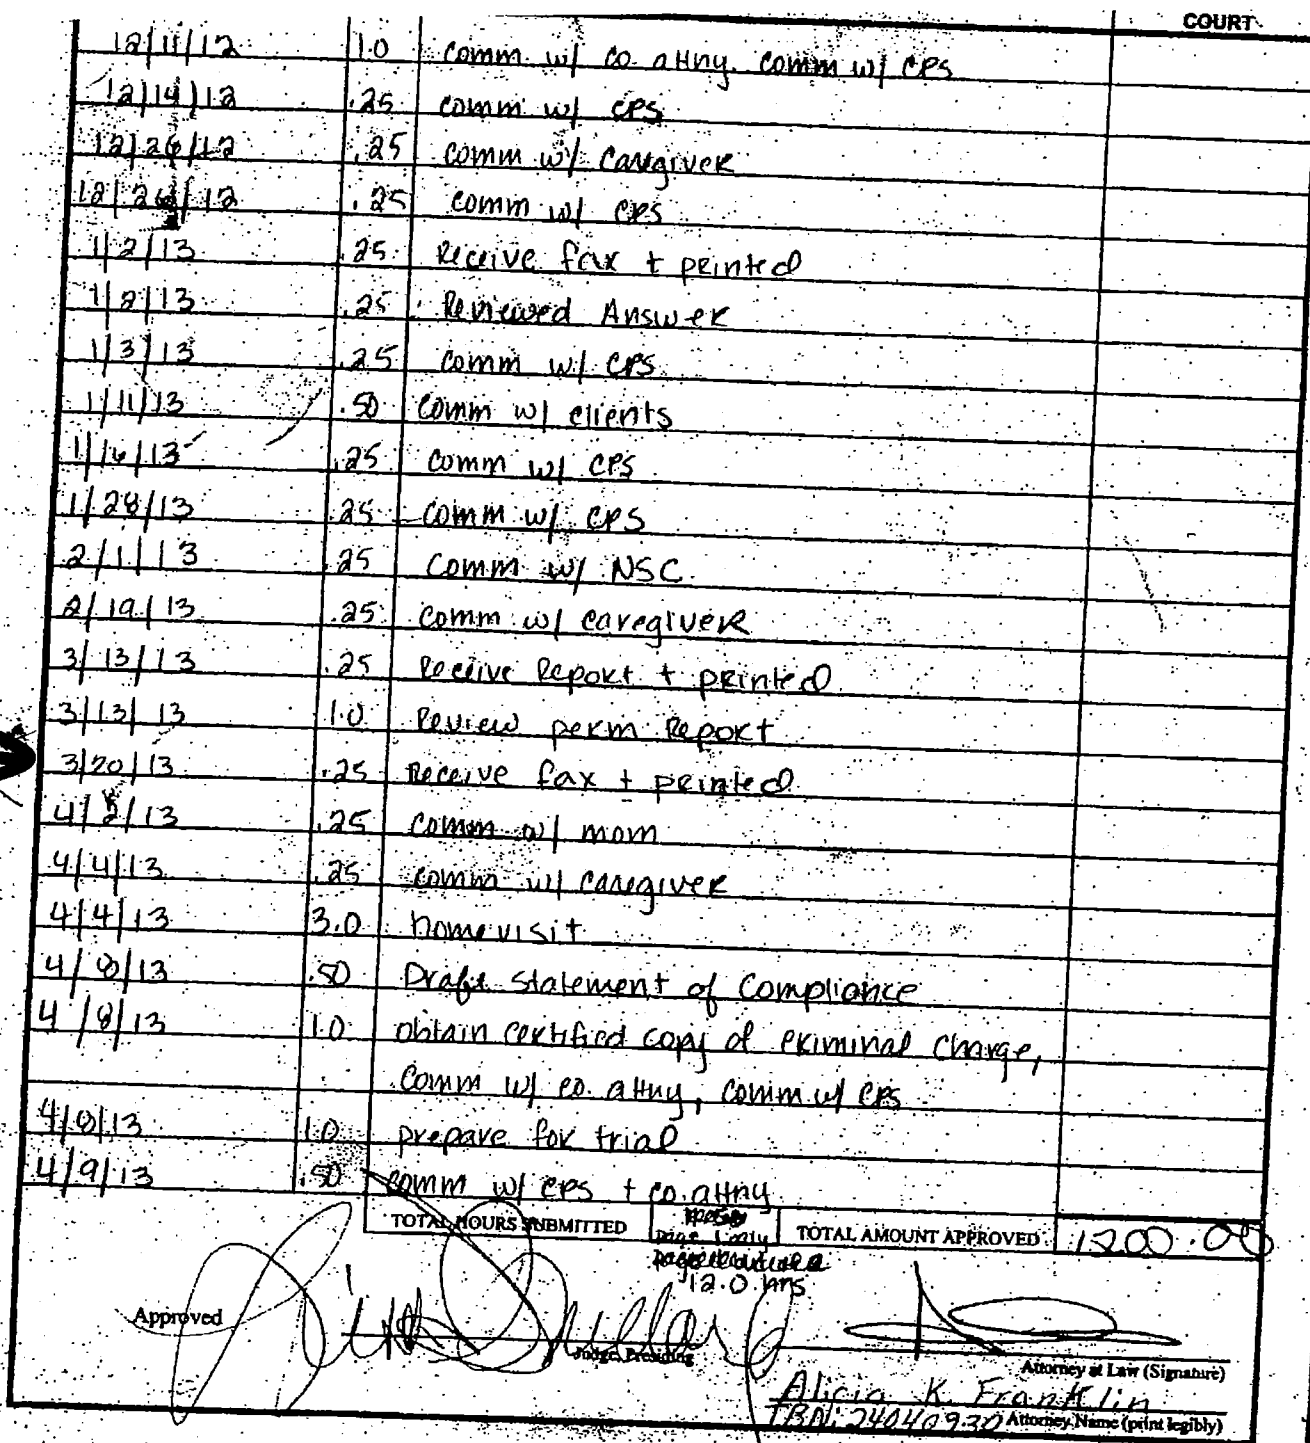 COURT
12/11/12 1.0 comm. w/ co. attny. comm w/ CPS
12/14/12 .25 comm w/ CPS
12/26/12 .25 comm w/ caregiver
12/26/12 .25 comm w/ CPS
1/2/13 .25 Receive fax + printed
1/2/13 .25 Reviewed Answer
1/3/13 .25 comm w/ CPS
1/11/13 .50 comm w/ clients
1/16/13 .25 comm w/ CPS
1/28/13 .25 comm w/ CPS
2/1/13 .25 Comm w/ NSC
2/19/13 .25 comm w/ caregiver
3/13/13 .25 Receive Report + printed
3/13/13 1.0 Review perm Report
3/20/13 .25 Receive fax + printed
4/2/13 .25 comm w/ mom
4/4/13 .25 comm w/ caregiver
4/4/13 3.0 home visit
4/8/13 .50 Draft Statement of Compliance
4/8/13 1.0 obtain certified copy of criminal charge,
Comm w/ co. attny, comm w/ CPS
4/8/13 1.0 prepare for trial
4/9/13 .50 comm w/ CPS + co. attny
TOTAL HOURS SUBMITTED page 1 only TOTAL AMOUNT APPROVED 1200.00
12.0 hrs
Approved
Judge Presiding
Attorney at Law (Signature)
Alicia K. Franklin
TBN: 24040930 Attorney Name (print legibly)